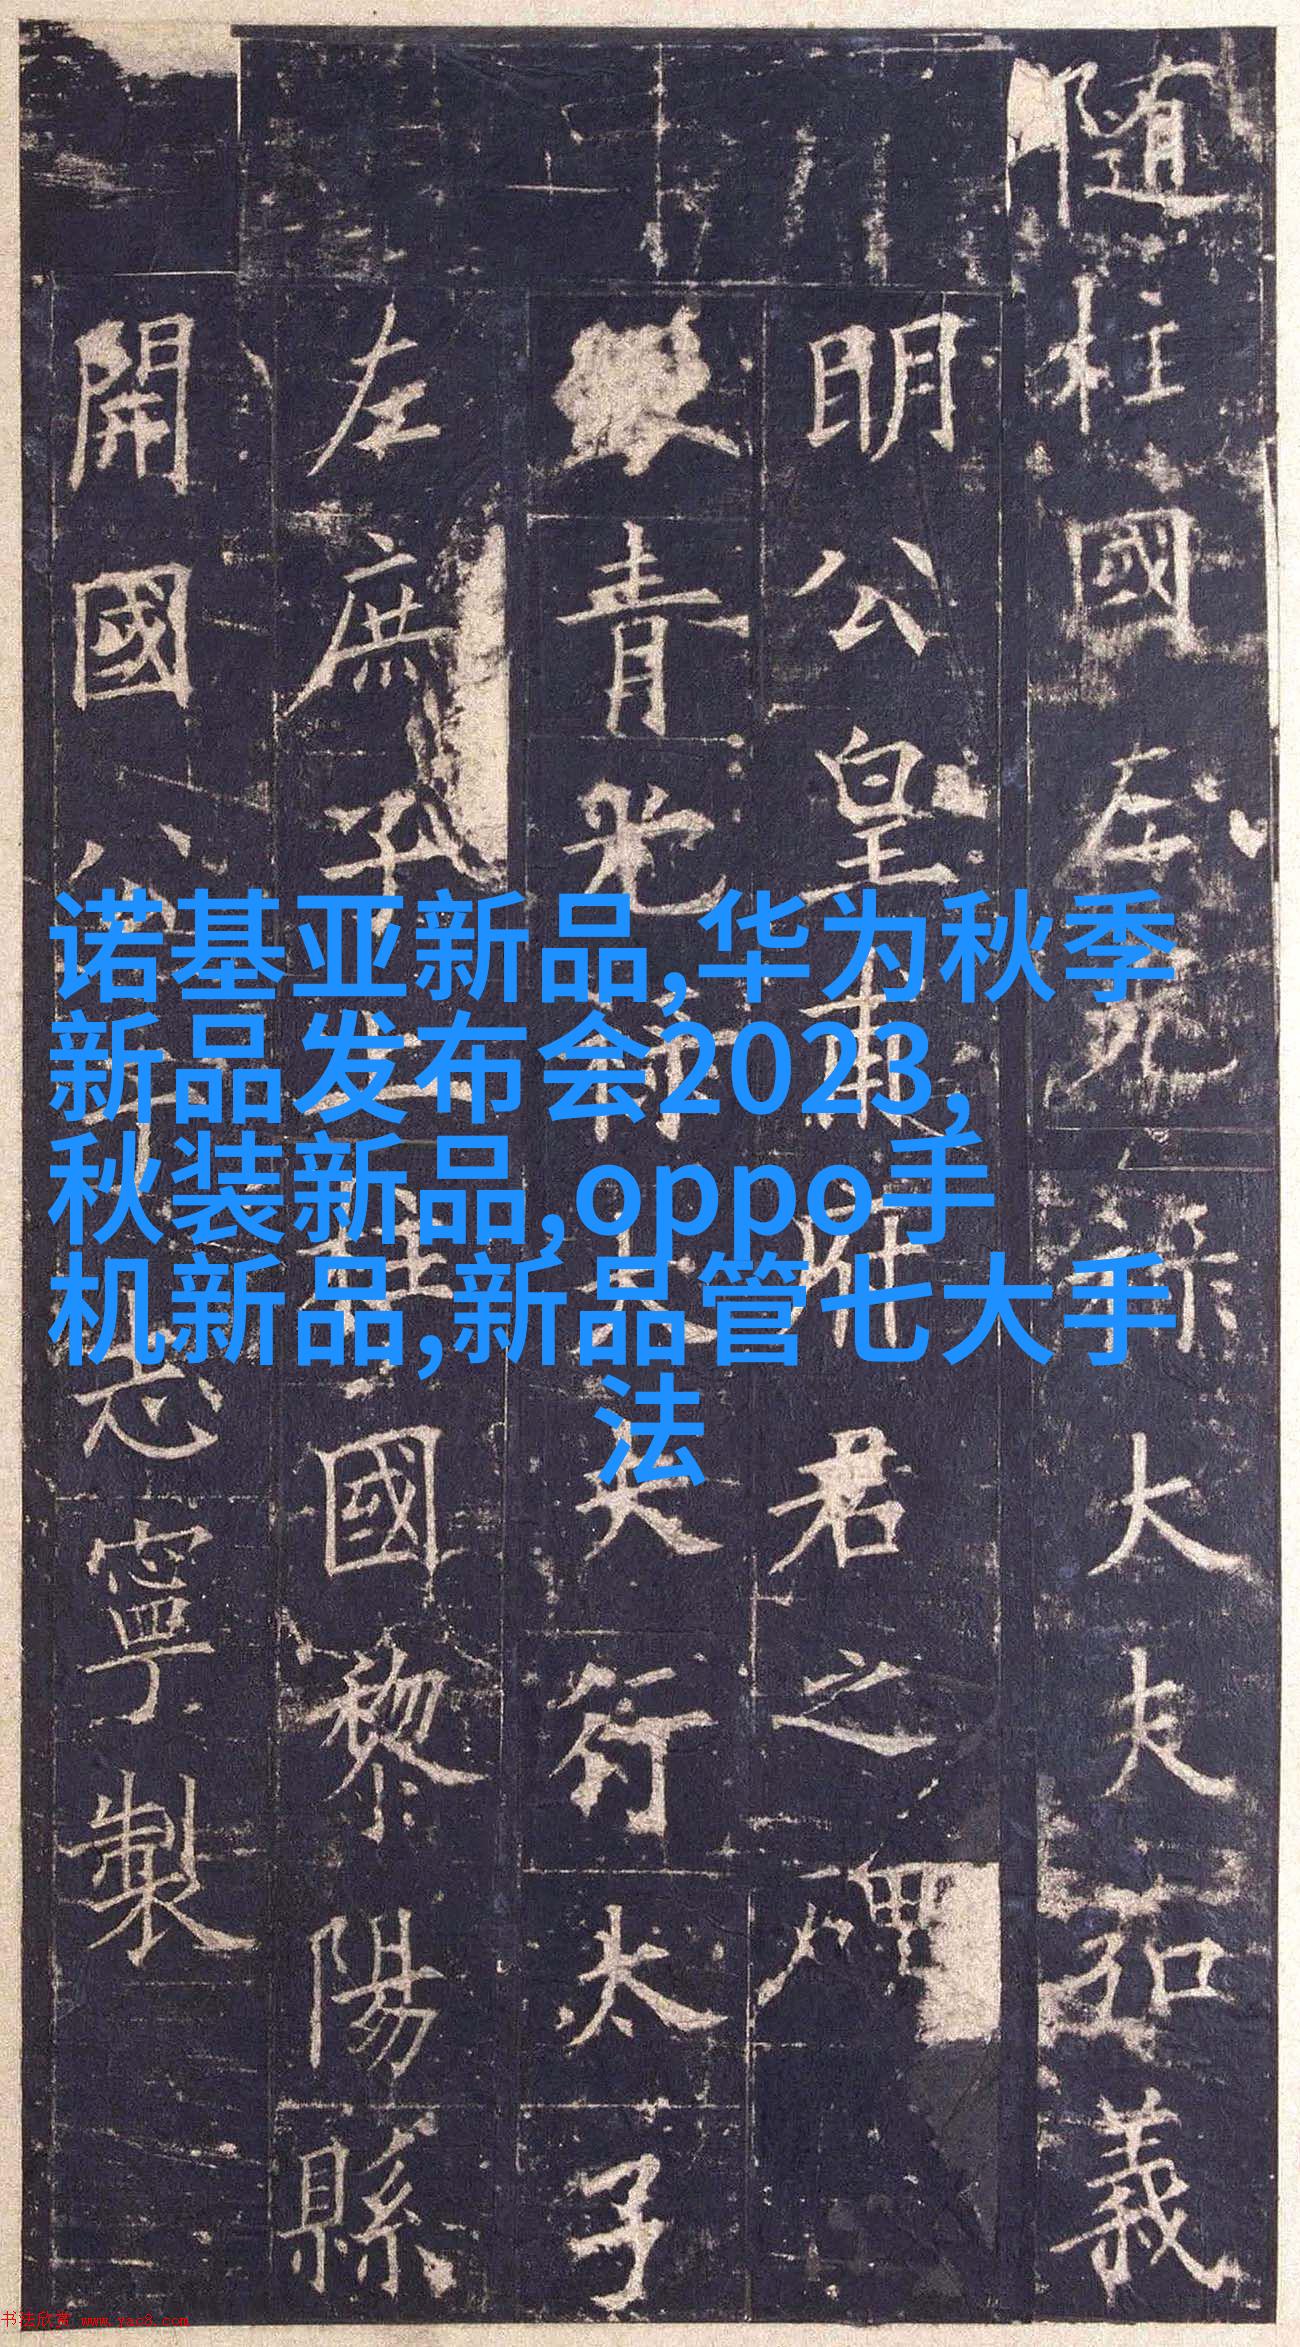 随柱國左光祿大夫弘義
明公皇甫府君之碑
銀青光祿大夫行太子
左庶子上柱國黎陽縣
開國公于志寧製
诺基亚新品,华为秋季
新品发布会2023,
秋装新品,oppo手
机新品,新品管七大手
法
书法欣赏 www.yac8.com